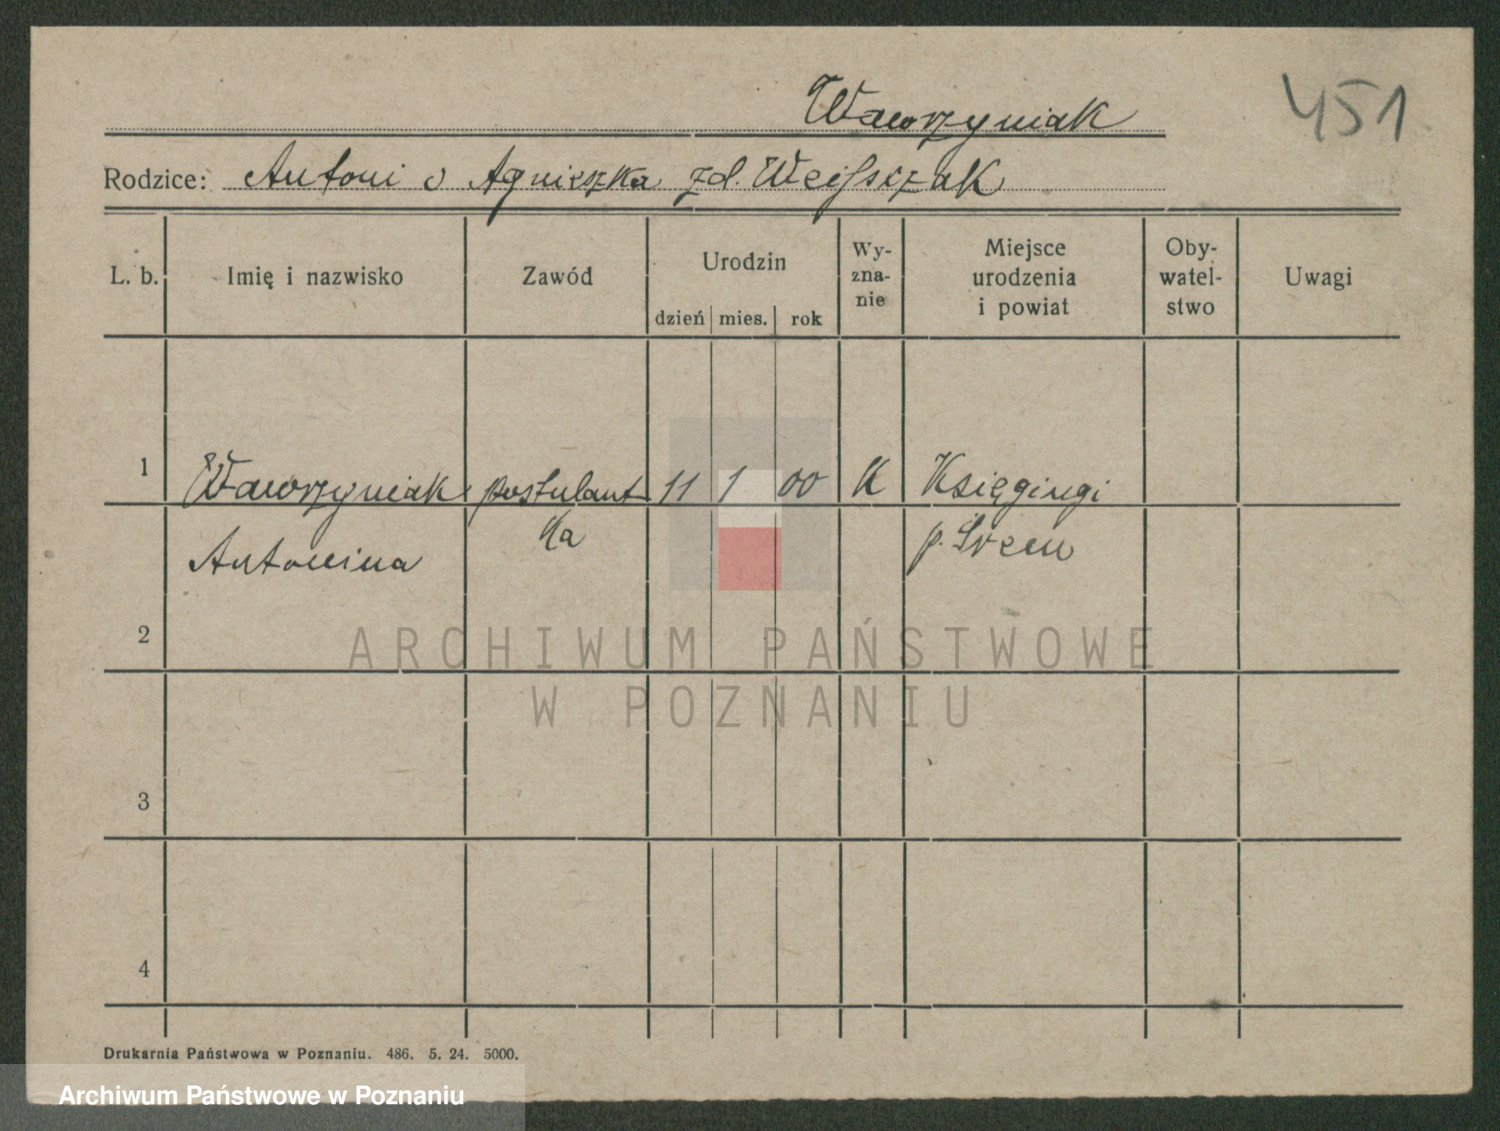 Wawrzyniak
451
Rodzice: Antoni i Agnieszka zd.
L. b.
Imię i nazwisko
Zawód
Urodzin
dzień mies. rok
Wy-
zna-
nie
Miejsce
urodzenia
i powiat
Oby-
watel-
stwo
Uwagi
1 Wawrzyniak postulant 11 1 00 K Księgingi
Antonina ka p. Śrem
2
3
4
ARCHIWUM PAŃSTWOWE
W POZNANIU
Drukarnia Państwowa w Poznaniu. 486. 5. 24. 5000.
Archiwum Państwowe w Poznaniu